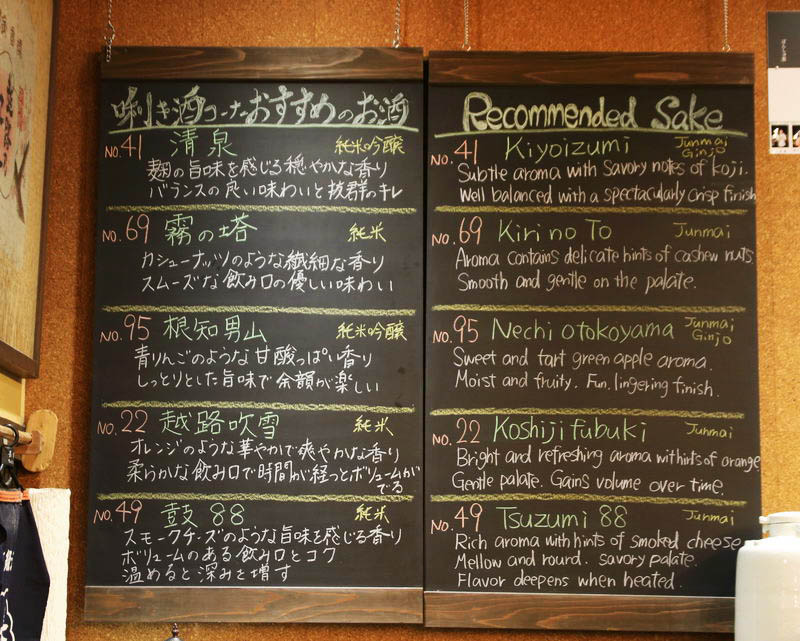 唎き酒コーナーおすすめのお酒
NO.41 清泉 純米吟醸
麹の旨味を感じる穏やかな香り
バランスの良い味わいと抜群のキレ
NO.69 霧の塔 純米
カシューナッツのような繊細な香り
スムーズな飲み口の優しい味わい
NO.95 根知男山 純米吟醸
青りんごのような甘酸っぱい香り
しっとりとした旨味で余韻が楽しい
NO.22 越路吹雪 純米
オレンジのような華やかで爽やかな香り
柔らかな飲み口で時間が経つとボリュームが
でる
NO.49 鼓 88 純米
スモークチーズのような旨味を感じる香り
ボリュームのある飲み口とコク
温めると深みを増す
Recommended Sake
NO.41 Kiyoizumi Junmai
Ginjo
Subtle aroma with Savory notes of Koji.
Well balanced with a spectacularly crisp finish
NO.69 Kiri no To Junmai
Aroma contains delicate hints of cashew nuts.
Smooth and gentle on the palate.
NO.95 Nechi otokoyama Junmai
Ginjo
Sweet and tart green apple aroma.
Moist and fruity. Fun, lingering finish.
NO.22 Koshiji fubuki Junmai
Bright and refreshing aroma with hints of orange
Gentle palate. Gains volume over time.
NO.49 Tsuzumi 88 Junmai
Rich aroma with hints of smoked cheese
Mellow and round. savory palate.
Flavor deepens when heated.